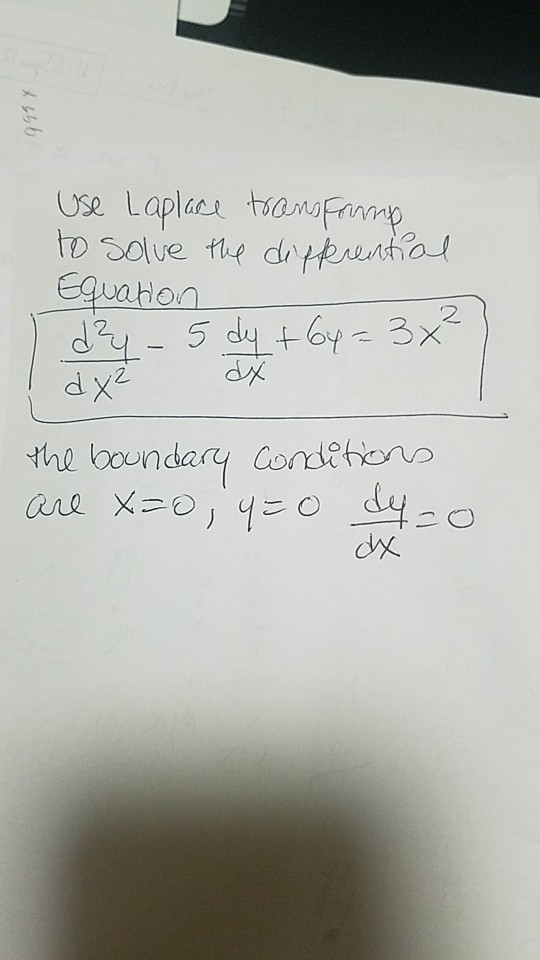 Use Laplace transforms
to solve the differential
Equation
d²y/dx² - 5 dy/dx + 6y = 3x²
the boundary conditions
are x=0, y=0 dy/dx=0